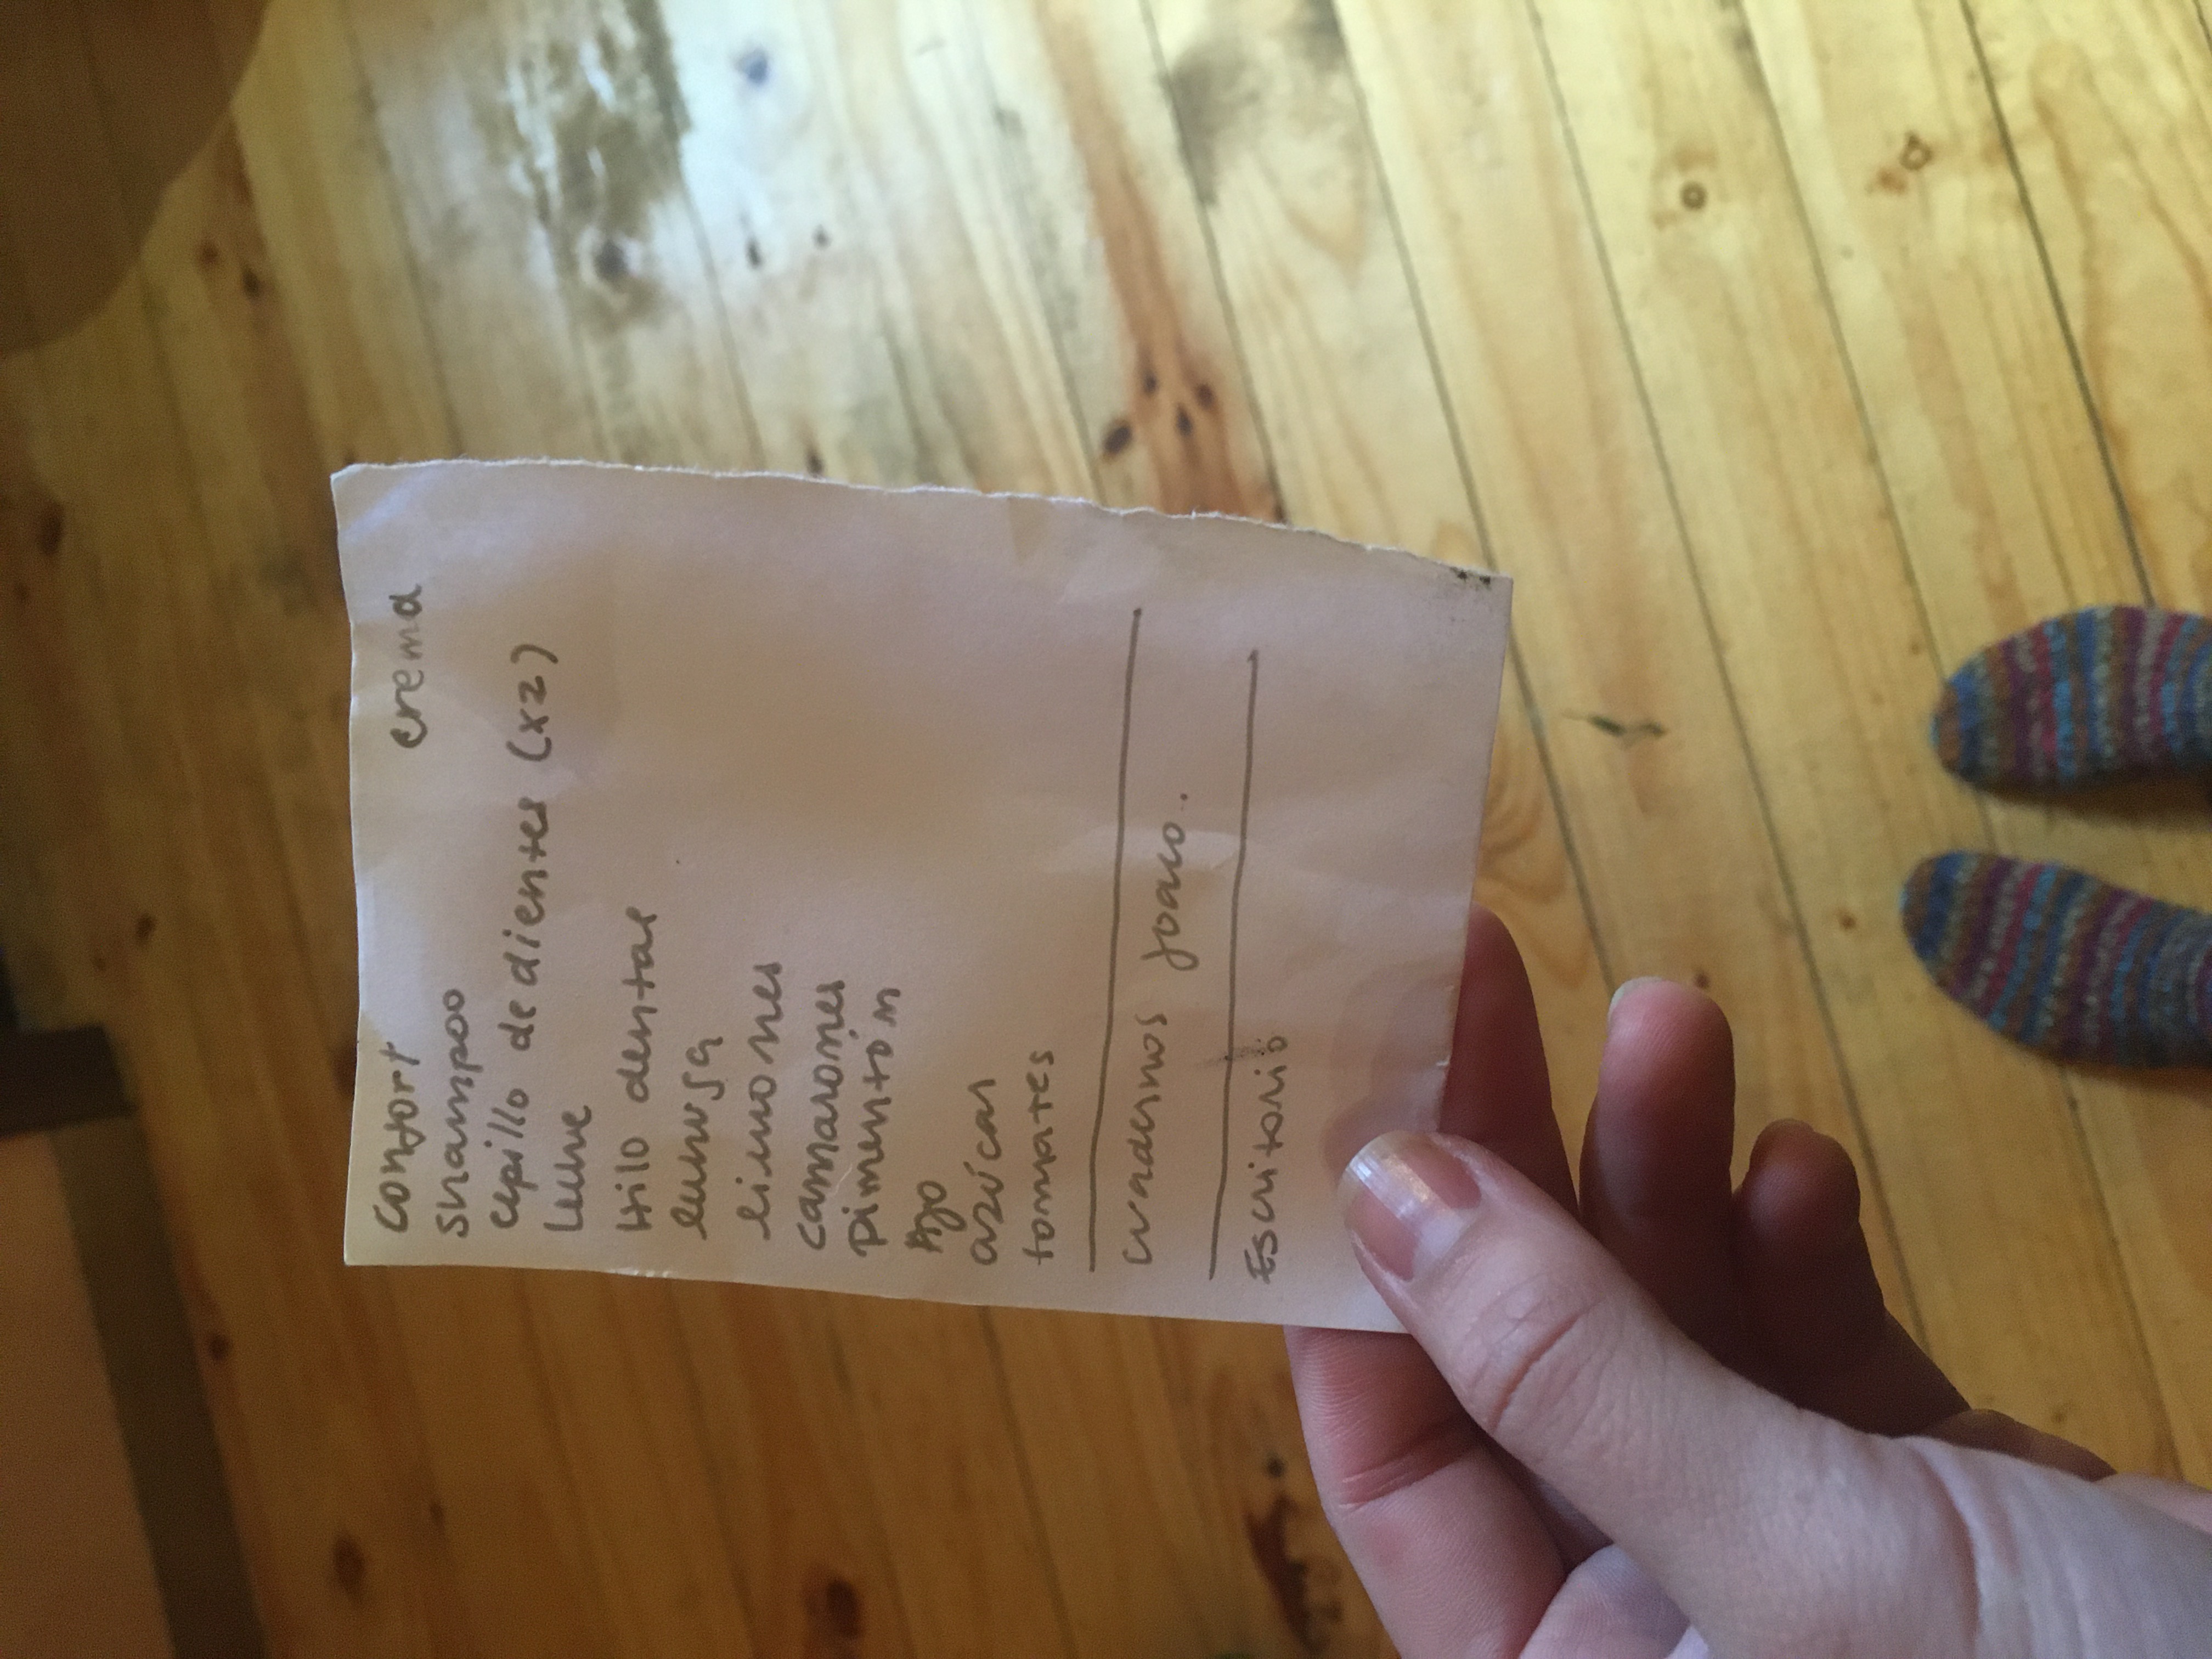 Confort crema
shampoo
cepillo de dientes (x2)
Leche
Hilo dental
lechuga
limones
camarones
Pimentón
Ajo
azúcar
tomates
cuadernos Joaco.
Escritorio